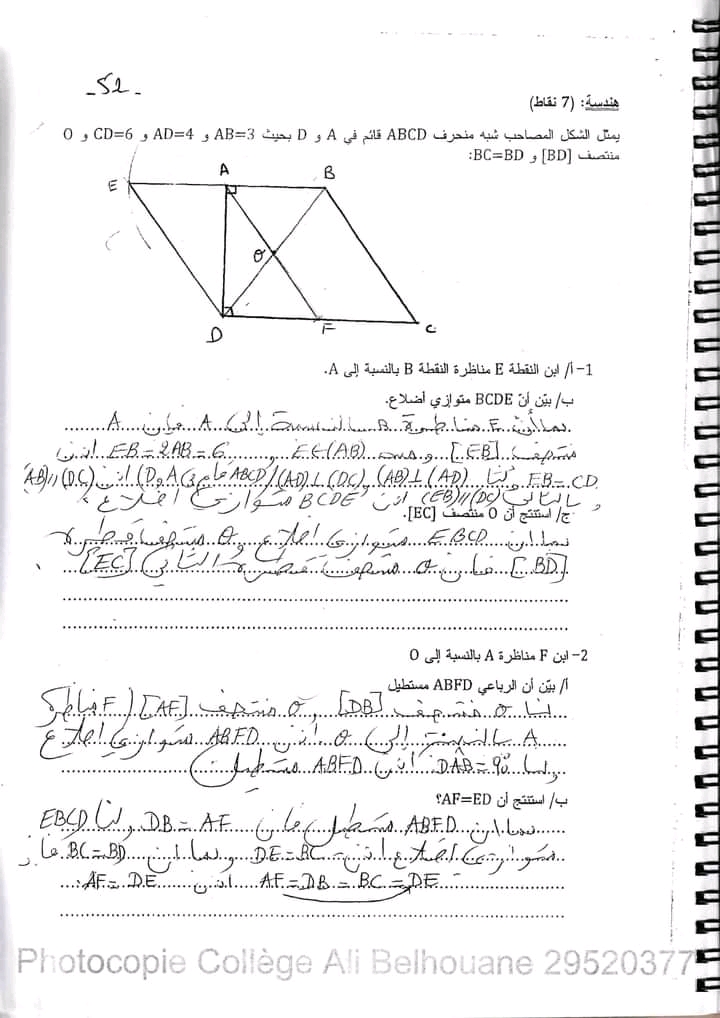 - 52 -
هندسة: (7 نقاط)
يمثل الشكل المصاحب شبه منحرف ABCD قائم في A و D بحيث AB=3 و AD=4 و CD=6 و O
منتصف [BD] و BC=BD:
E A B
O
D F C
1- أ/ ابن النقطة E مناظرة النقطة B بالنسبة إلى A.
ب/ بيّن أنّ BCDE متوازي أضلاع.
بما أن E مناظرة B بالنسبة إلى A فإن A
منتصف [EB] ومنه E∈(AB) و EB=2AB=6 إذن
EB=CD ولنا (AB)⊥(AD) و (AD)⊥(DC) / ABCD قائم في A و D) إذن (AB)//(DC)
وبالتالي (EB)//(DC) إذن BCDE متوازي أضلاع
ج/ استنتج أن O منتصف [EC].
بما أن EBCD متوازي أضلاع و O منتصف قطره
[BD] فإن O منتصف قطره الثاني [EC]
2- ابن F مناظرة A بالنسبة إلى O
أ/ بيّن أن الرباعي ABFD مستطيل
لنا O منتصف [DB] و O منتصف [AF] (F مناظرة
A بالنسبة إلى O) إذن ABFD متوازي أضلاع
ولنا DÂB=90° إذن ABFD مستطيل
ب/ استنتج أن AF=ED؟
بما أن ABFD مستطيل فإن DB=AF ولنا EBCD
متوازي أضلاع إذن DE=BC وبما أن BC=BD فإن
AF=DB=BC=DE إذن AF=DE
Photocopie Collège Ali Belhouane 29520377